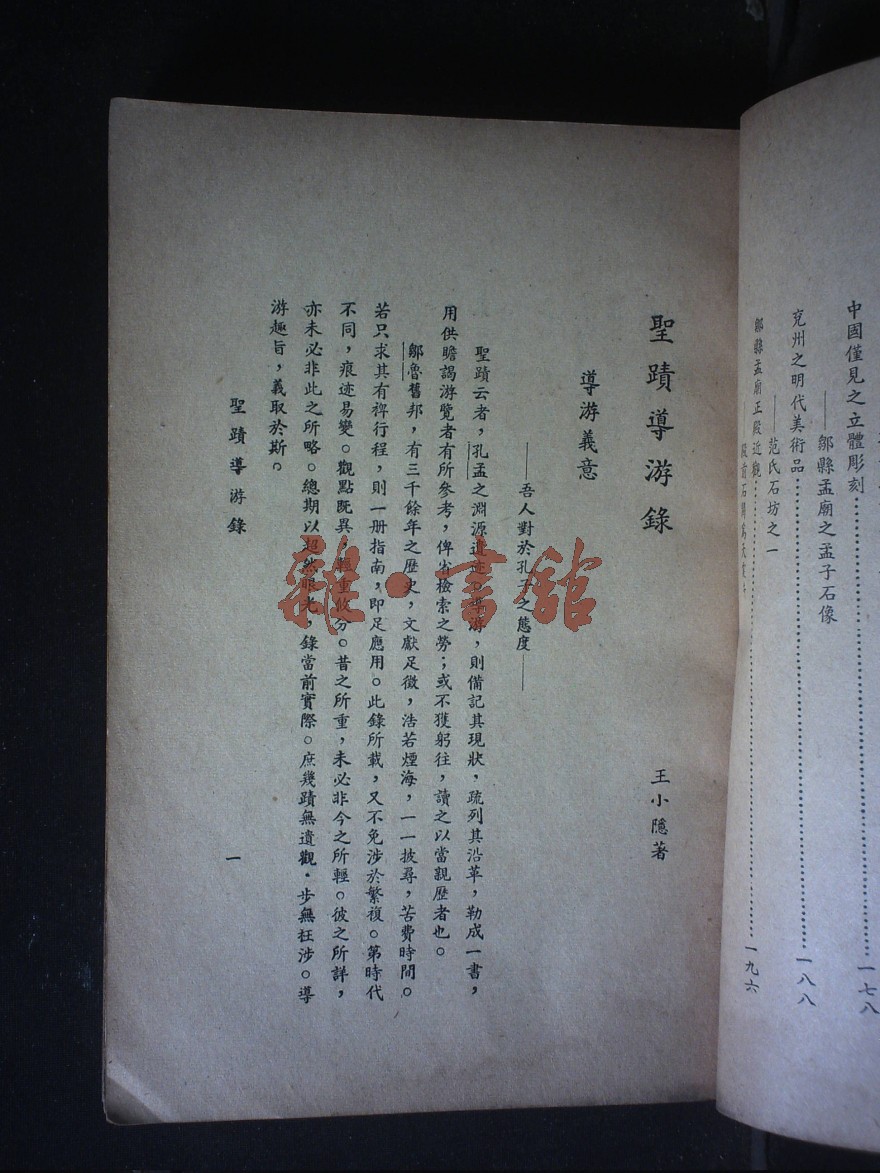 中國僅見之立體彫刻……一七八
——鄒縣孟廟之孟子石像
兗州之明代美術品……一八八
——范氏石坊之一
鄒縣孟廟正殿近觀……一九六
聖蹟導游錄
王小隱著
導游義意
——吾人對於孔子之態度——
聖蹟云者，孔孟之淵源遺迹。導游，則備記其現狀，疏列其沿革，勒成一書，
用供瞻謁游覽者有所參考，俾省檢索之勞；或不獲躬往，讀之以當親歷者也。
鄒魯舊邦，有三千餘年之歷史，文獻足徵，浩若煙海，一一披尋，苦費時間。
若只求其有裨行程，則一册指南，即足應用。此錄所載，又不免涉於繁複。第時代
不同，痕迹易變。觀點旣異，輕重攸分。昔之所重，未必非今之所輕。彼之所詳，
亦未必非此之所略。總期以超然眼光，錄當前實際。庶幾蹟無遺觀，步無枉涉。導
游趣旨，義取於斯。
聖蹟導游錄
一
雜·書館